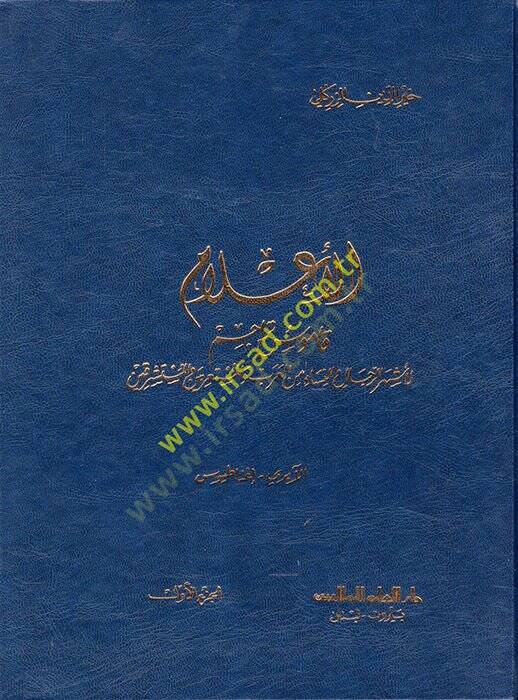 خير الدين الزركلي
الأعلام
قاموس تراجم
لأشهر الرجال والنساء من العرب والمستعربين والمستشرقين
الجزء الأول
دار العلم للملايين
بيروت - لبنان
www.irsad.com.tr
www.irsad.com.tr